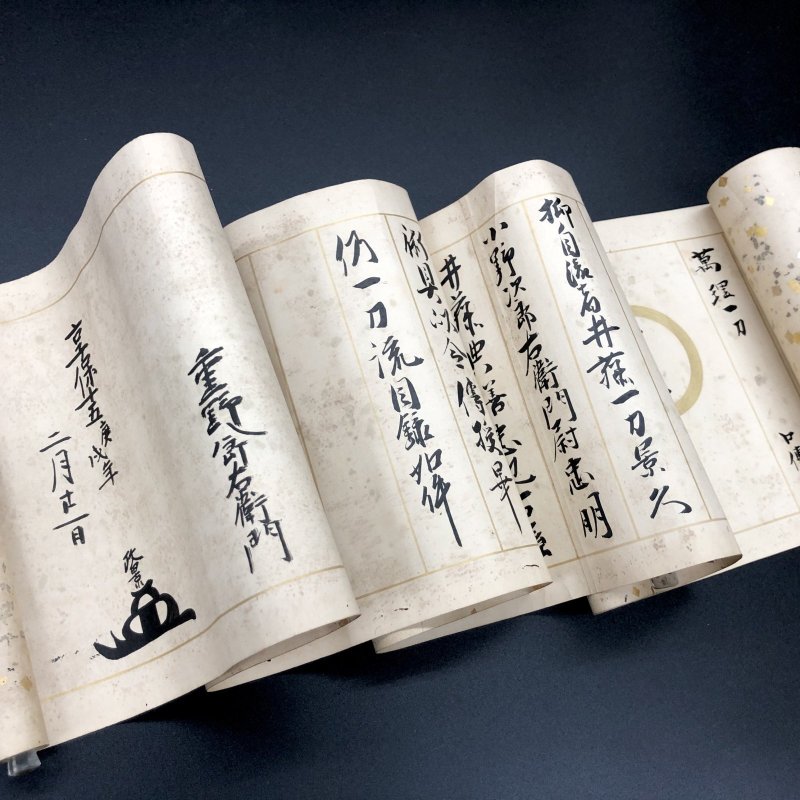 萬理一刀
口傳
抑自流者井藤一刀景久
小野次郎右衛門尉忠明
井藤典善
術具以令傳授畢
仍一刀流目録如件
重野
右衛門
享保十五庚戌年
二月廿一日
政景